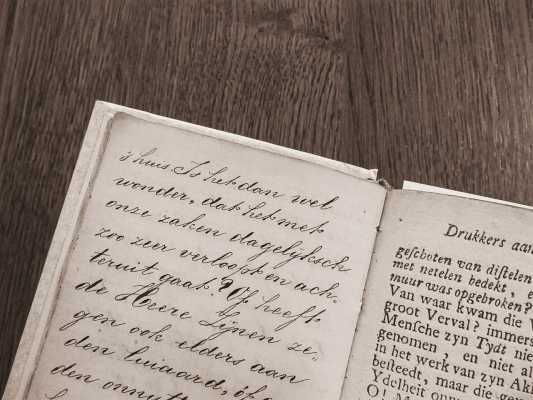 's huis. Is het dan wel
wonder, dat het met
onze zaken dagelijksch
zoo zeer verloopt en ach-
teruit gaat? Of heeft
de Heere Zijnen ze-
gen ook elders aan
den luiaard, óf aan
den onnutt
Drukkers aan
geſchoten van diſtelen
met netelen bedekt, e
muur was opgebroken?
Van waar kwam die V
groot Verval? immers
Menſche zyn Tydt nie
genomen, en niet al
in het werk van zyn Ak
beſteedt, maar die gev
Ydelheit onnut
O! M